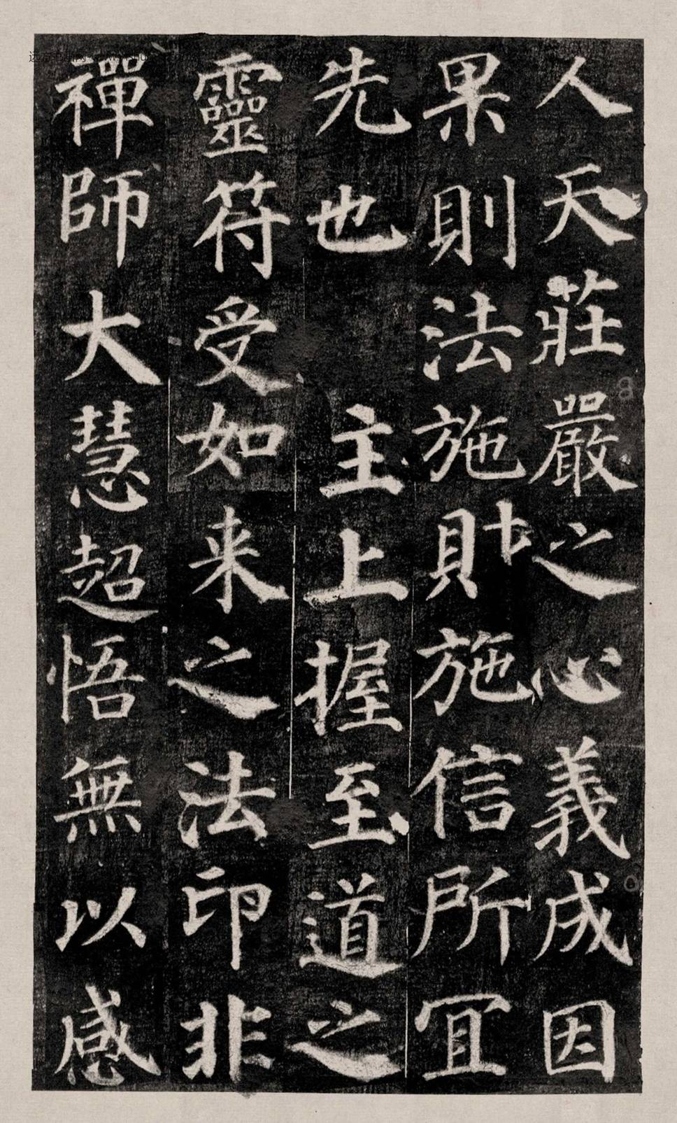 人天莊嚴之心義成因
果則法施財施信所冝
先也 主上握至道之
靈符受如来之法印非
禪師大慧超悟無以感